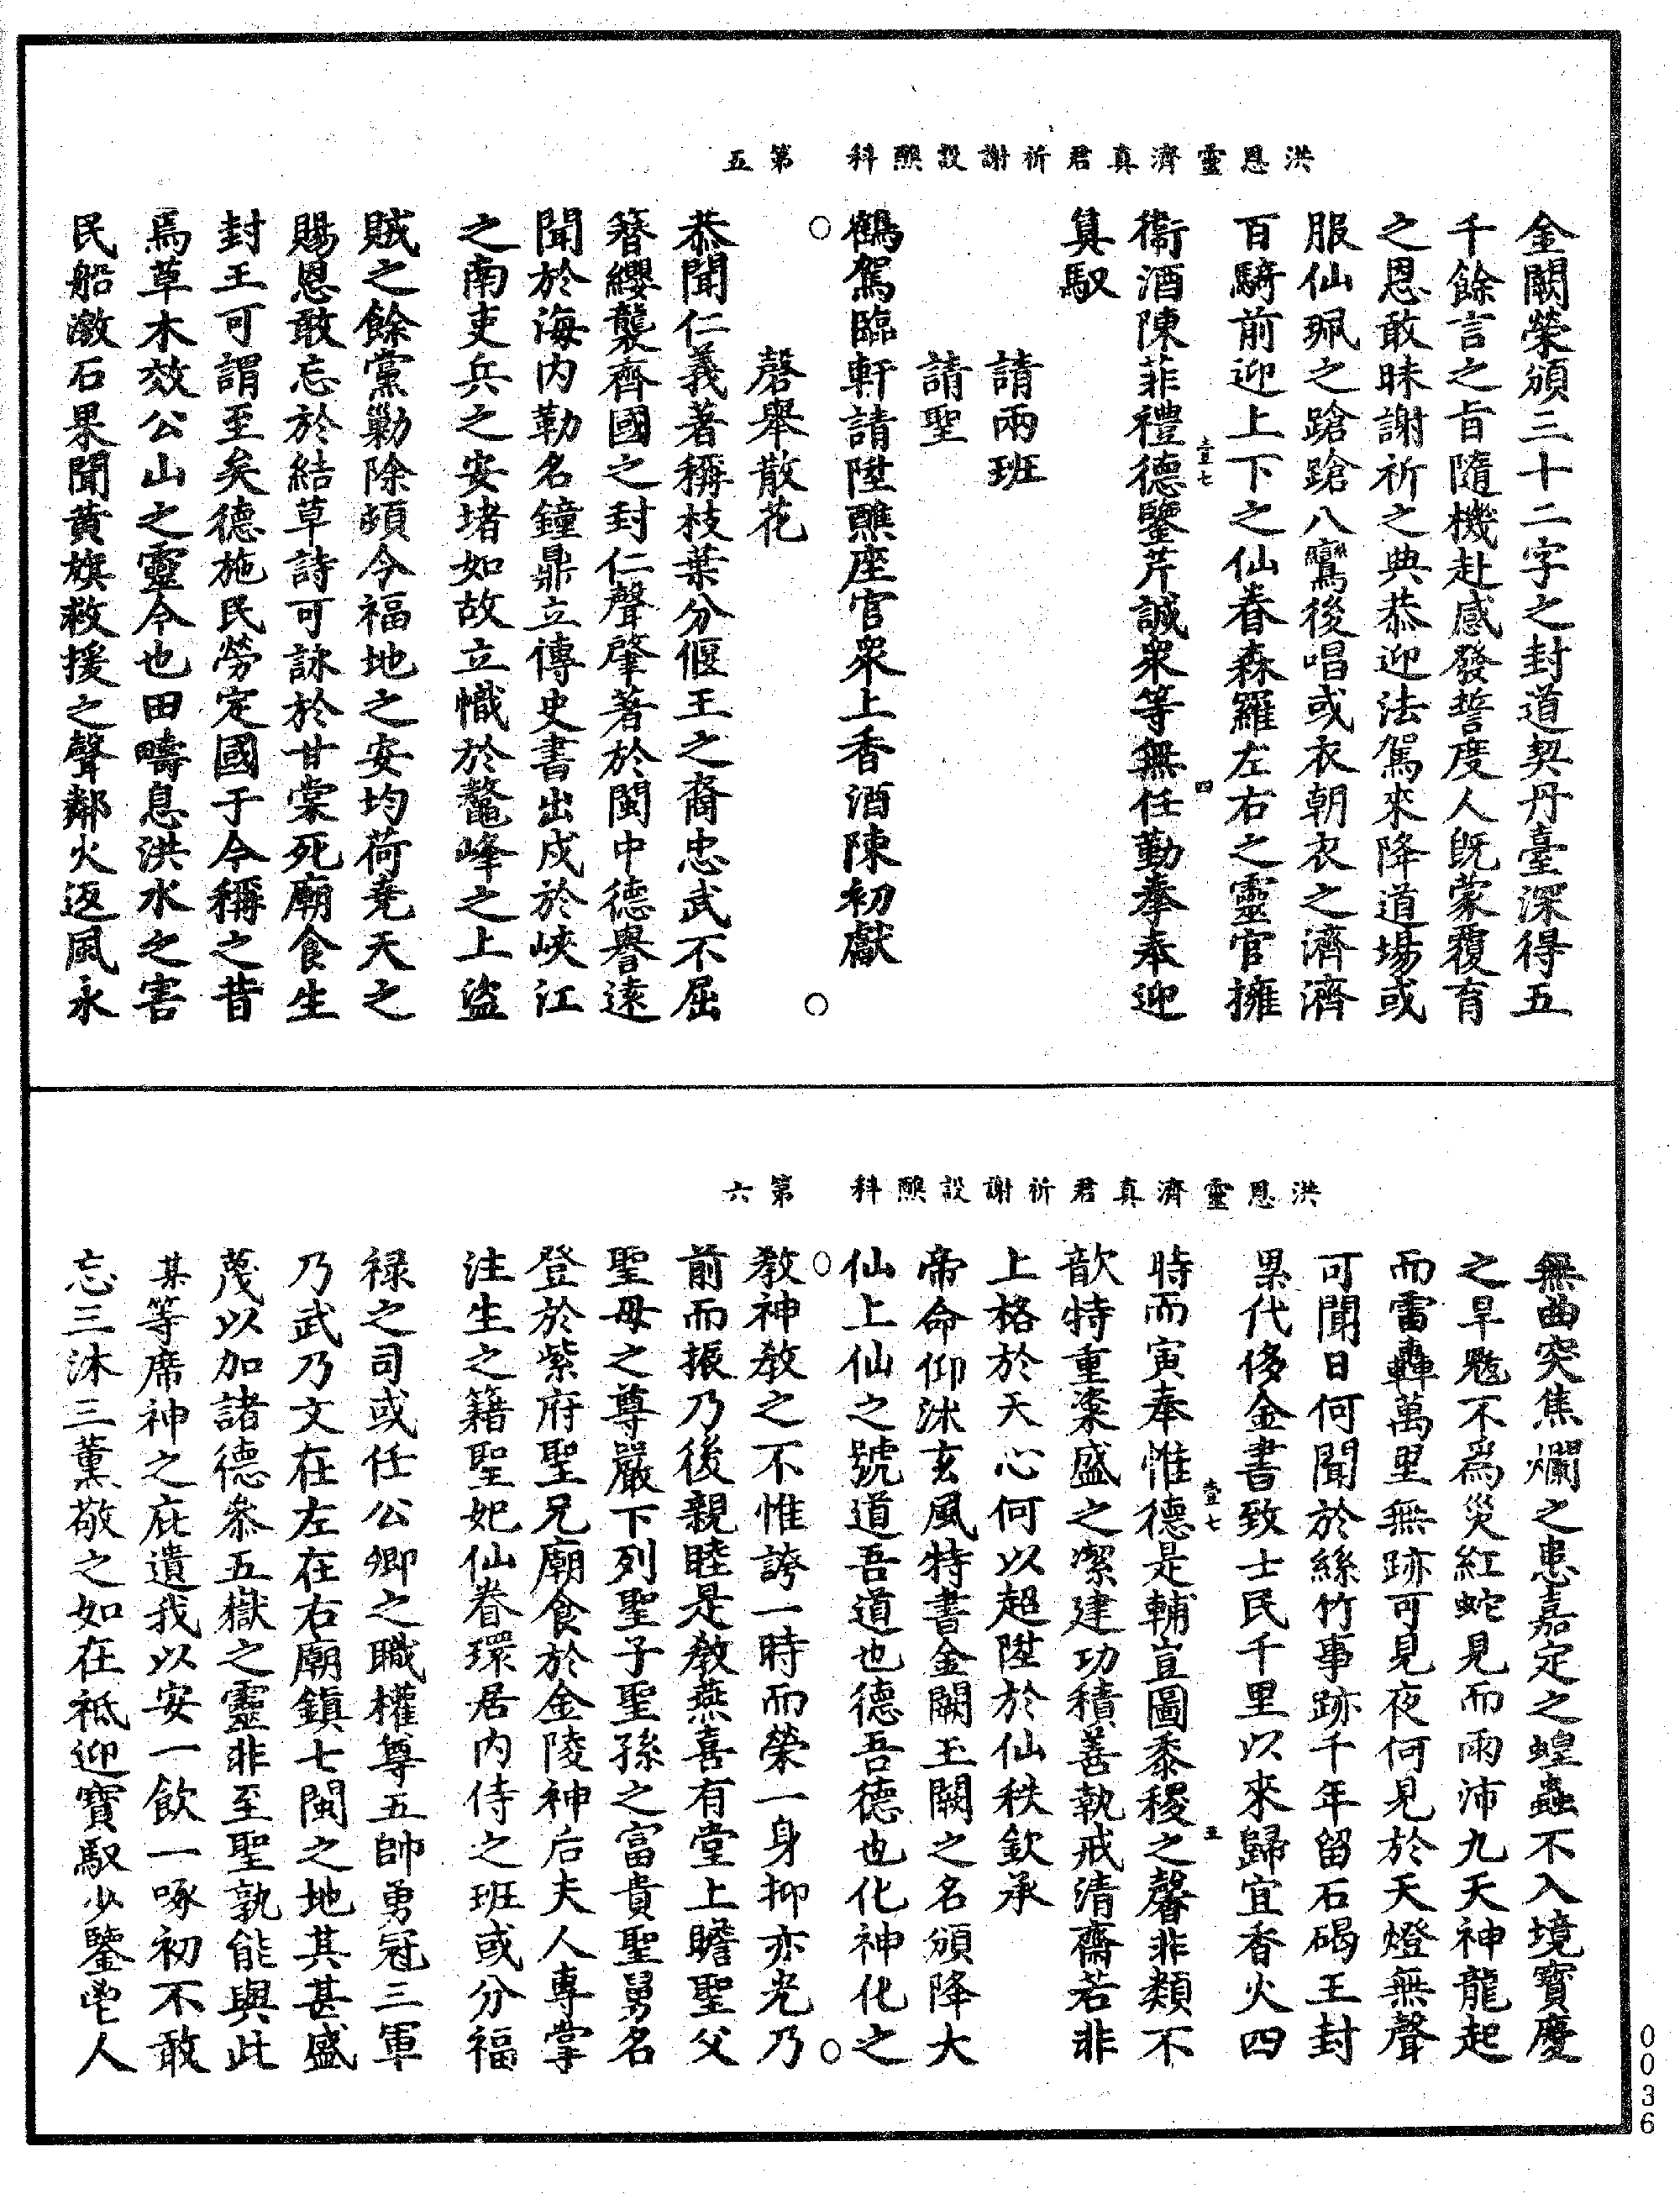 洪恩靈濟真君祈謝設醮科　第五
金闕榮頒三十二字之封道契丹臺深得五
千餘言之旨隨機赴感發誓度人既蒙覆育
之恩敢昧謝祈之典恭迎法駕來降道場或
服仙珮之蹌蹌八鸞後唱或衣朝衣之濟濟
百騎前迎上下之仙眷森羅左右之靈官擁
壹七　四
衞酒陳菲禮德鑒芹誠衆等無任勤拳奉迎
真馭
請兩班
請聖
鶴駕臨軒請陞醮座官衆上香酒陳初獻
○　○
磬舉散花
恭聞仁義著稱枝葉分偃王之裔忠武不屈
簪纓襲齊國之封仁聲肇著於閩中德譽遠
聞於海内勒名鐘鼎立傳史書出戍於峽江
之南吏兵之安堵如故立幟於鼇峰之上盜
賊之餘黨勦除頻今福地之安均荷堯天之
賜恩敢忘於結草詩可詠於甘棠死廟食生
封王可謂至矣德施民勞定國于今稱之昔
焉草木效公山之靈今也田疇息洪水之害
民船激石果聞黄旗救援之聲鄰火返風永
洪恩靈濟真君祈謝設醮科　第六
無曲突焦爛之患嘉定之蝗蟲不入境寶慶
之旱魃不爲災紅蛇見而雨沛九天神龍起
而雷轟萬里無跡可見夜何見於天燈無聲
可聞日何聞於絲竹事跡千年留石碣王封
累代侈金書致士民千里以來歸宜香火四
壹七　五
時而寅奉惟德是輔豈圖黍稷之馨非類不
歆特重粢盛之潔建功積善執戒清齋若非
上格於天心何以超陞於仙秩欽承
帝命仰沐玄風特書金闕玉闕之名頒降大
仙上仙之號道吾道也德吾德也化神化之
○　○
教神教之不惟誇一時而榮一身抑亦光乃
前而振乃後親睦是教燕喜有堂上瞻聖父
聖母之尊嚴下列聖子聖孫之富貴聖舅名
登於紫府聖兄廟食於金陵神后夫人專掌
注生之籍聖妃仙眷環居内侍之班或分福
禄之司或任公卿之職權尊五帥勇冠三軍
乃武乃文在左在右廟鎮七閩之地其甚盛
蔑以加諸德叅五嶽之靈非至聖孰能與此
某等席神之庇遺我以安一飲一啄初不敢
忘三沐三薰敬之如在祗迎寶馭少鑒人
0036